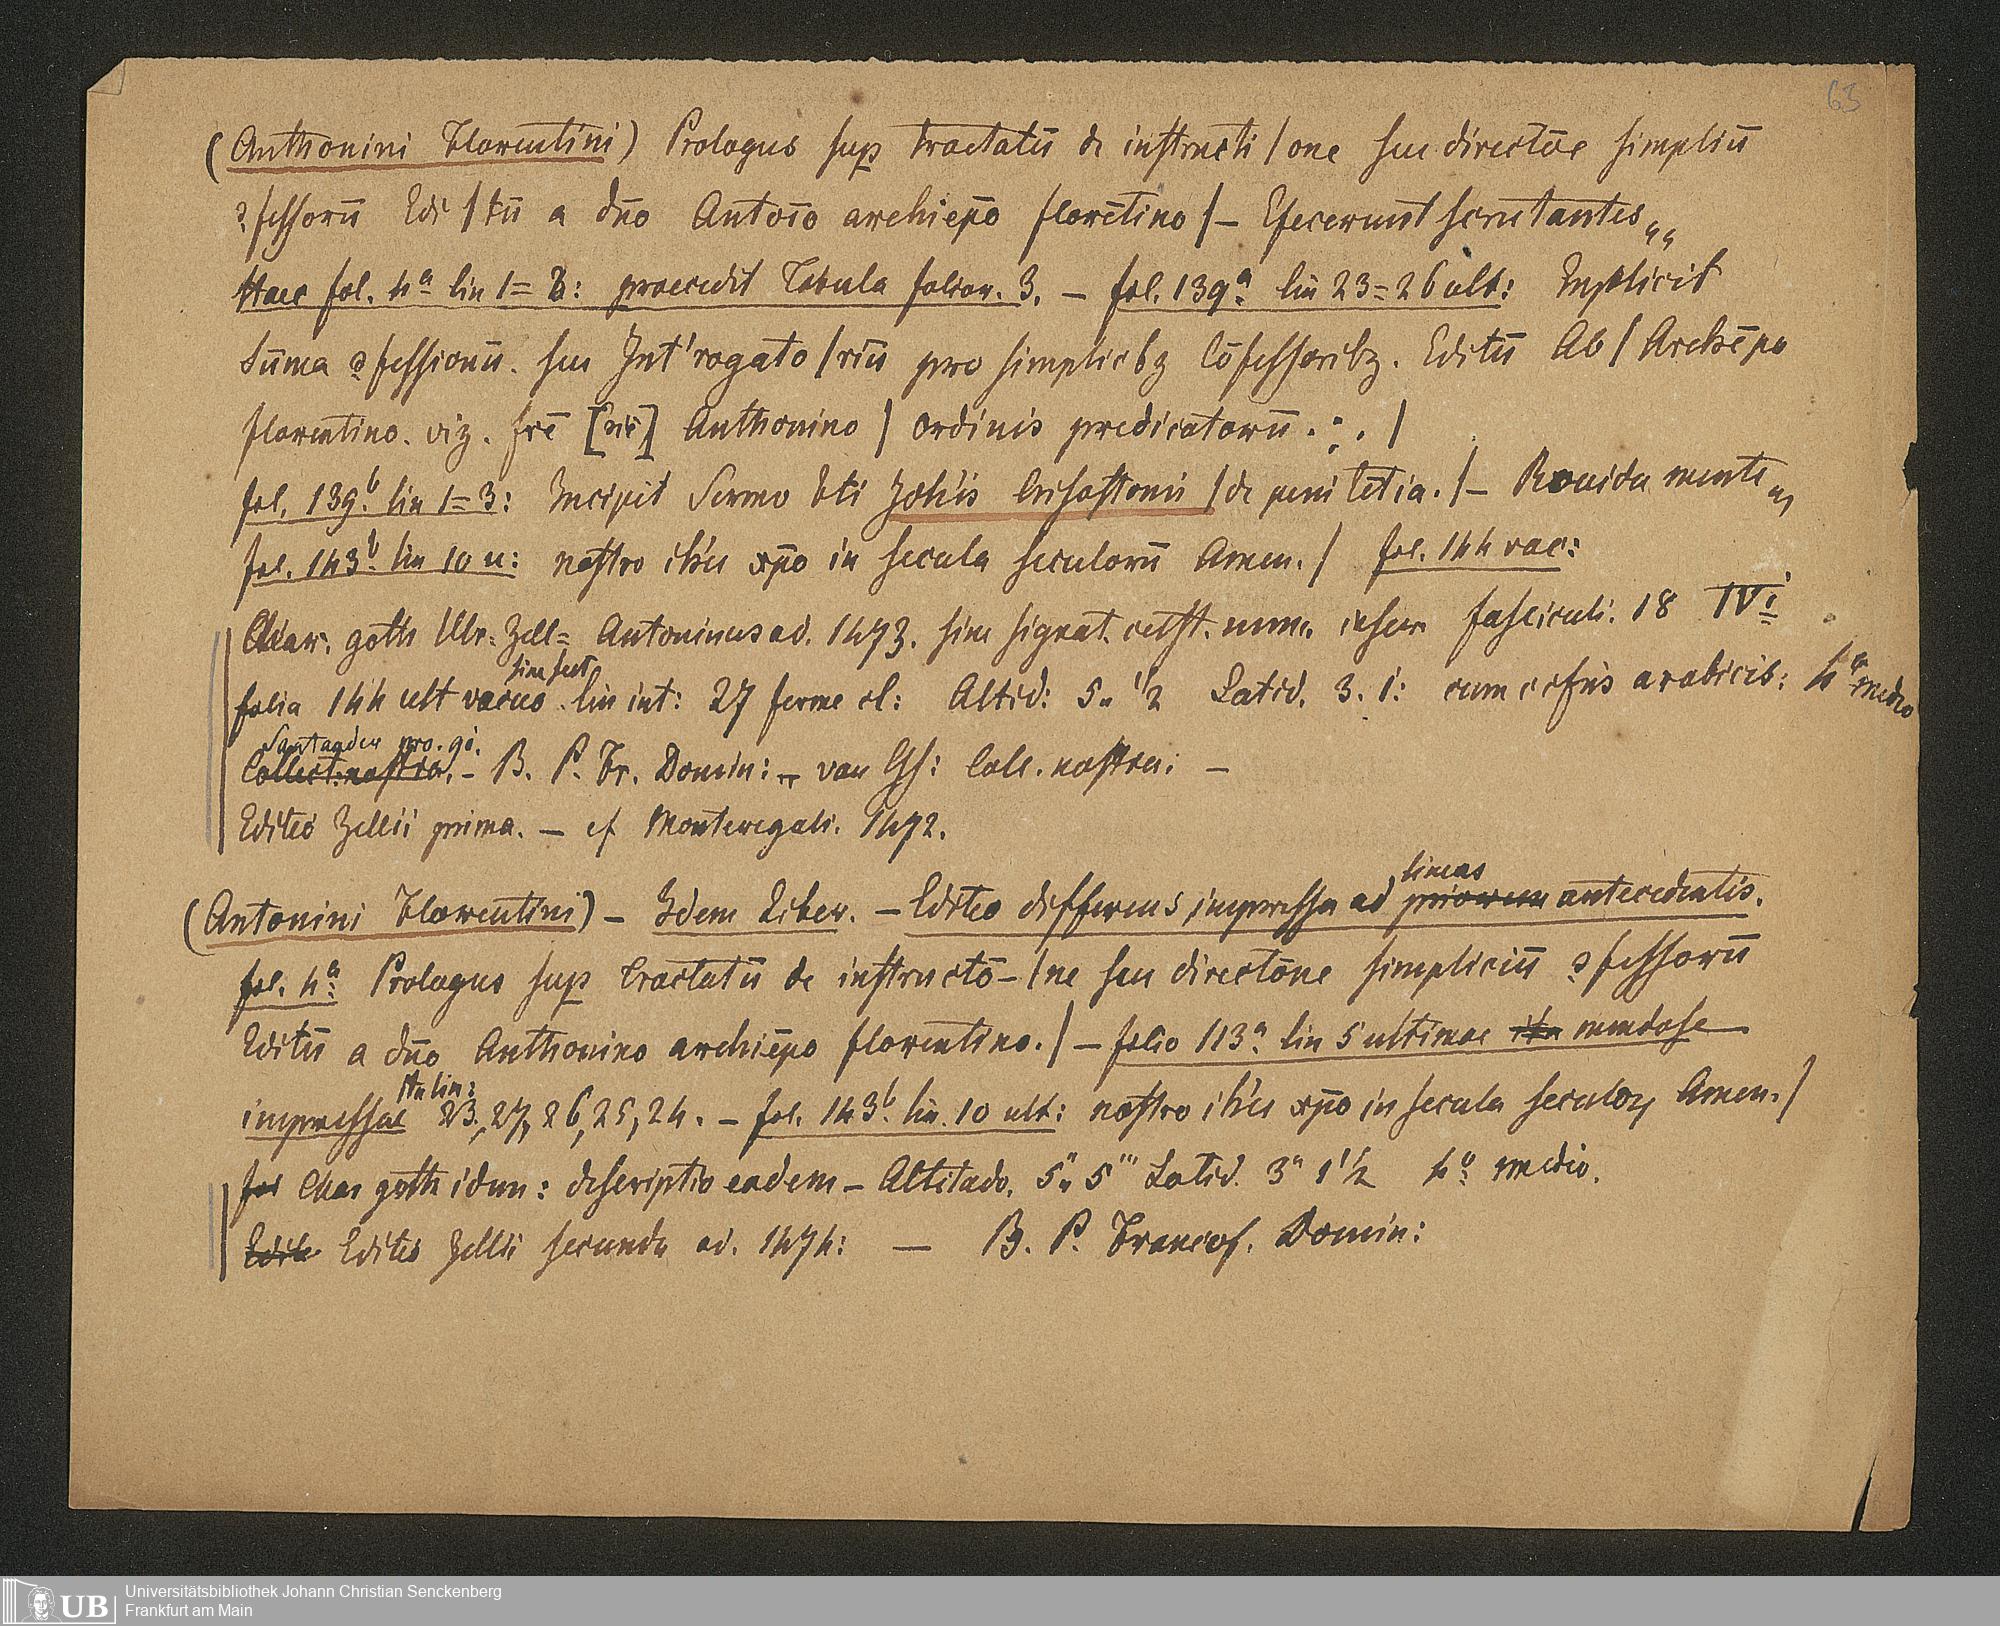 63
(Anthonini Florentini) Prologus sup tractatū de instructi / one seu directōe simpliū
ɔfessorū Edi / tū a dn̄o Antoīo archiep̄o florētino / – Efecerunt scrutantes „
Haec fol. 4a lin 1=3: praecedit Tabula folior. 3. – fol. 139a lin 23=26 ult: Explicit
Sum̄a ɔfessionū. seu Int'rogato / riū pro simplicibz Cōfessoribz. Editū Ab / Archiep̄o
florentino. viz. frē [sic] Anthonino / ordinis predicatorū . : . /
fol. 139b lin 1=3: Incipit Sermo bti Joh'is Crisostomi / de peni tētia. / – Prouida mente
fol. 143b lin 10 u: nostro ih'u xp̄o in secula seculorū Amen. / fol. 144 vac:
Char. goth Ulr. Zell= Antoninus ad. 1473. sine signat. custt. num. inser. fasciculi. 18 IVi
sine sect
folia 144 ult vacuo. lin int: 27 ferme cl: Altid: 5„ 1/2 Latid. 3. 1: cum cifris arabicis: 4o medio
Santander pro. gi.
Collect. nostra. – B. P. Fr. Domin: – van Gs: Coll. nostra: –
Editio Zellii prima. – cf Monteregali. 1472.
lineas
(Antonini Florentini) – Idem Liber. – Editio differens, impressa ad priorem antecedentis.
fol. 4a Prologus sup Tractatū de instructō– / ne seu directōne simpliciū ɔfessorū
Editū a dn̄o Anthonino archiep̄o florentino. / – folio 113a lin 5 ultimae ita mendose
impressae 23, 27, 26, 25, 24. – fol. 143b lin. 10 ult: nostro ih'u xp̄o in secula seculoꝝ Amen. /
fol Char goth idem: descriptio eadem – Altitudo. 5„ 5''' Latid. 3'' 1'1/2 4o medio.
Edite Editio Zellii secunda ad. 1474: – B. P. Francof. Domin:
UB Universitätsbibliothek Johann Christian Senckenberg
Frankfurt am Main